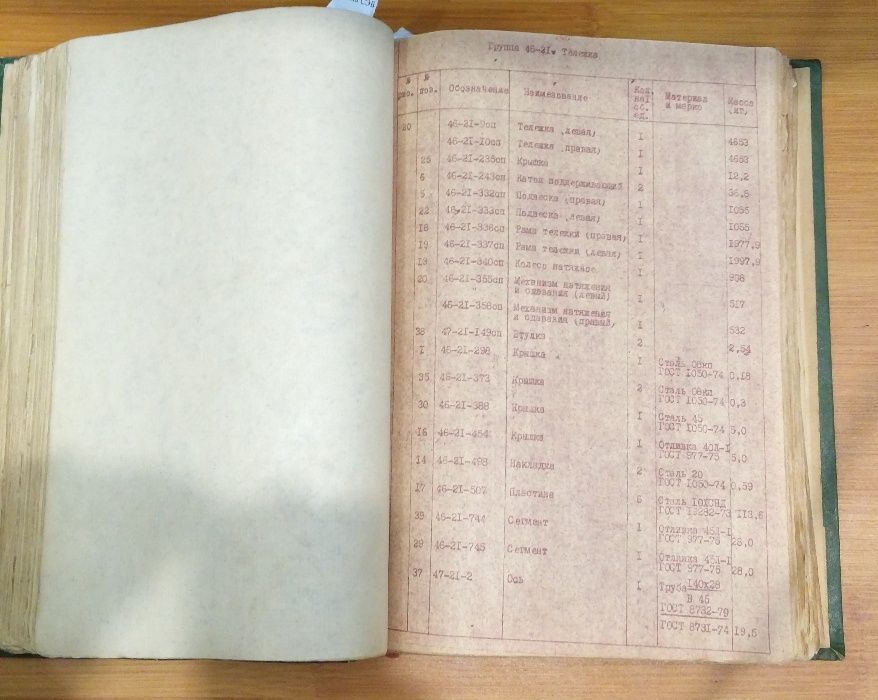 Группа 46-21. Тележка
№ рис. № поз. Обозначение Наименование Кол. на 1 сб. ед. Материал и марка Масса (кг)
20 46-21-9сп Тележка (левая) 1 4653
46-21-10сп Тележка (правая) 1 4653
25 46-21-235сп Крышка 1 12,2
6 46-21-243сп Каток поддерживающий 2 36,5
5 46-21-332сп Подвеска (правая) 1 1055
22 46-21-333сп Подвеска (левая) 1 1055
18 46-21-336сп Рама тележки (правая) 1 1977,9
19 46-21-337сп Рама тележки (левая) 1 1997,9
13 46-21-340сп Колесо натяжное 1 908
20 46-21-355сп Механизм натяжения
и сдавания (левый) 1 517
46-21-356сп Механизм натяжения
и сдавания (правый) 1 532
38 47-21-149сп Втулка 2 2,54
1 46-21-298 Крышка 1 Сталь 08кп
ГОСТ 1050-74 0,18
35 46-21-373 Крышка 2 Сталь 08кп
ГОСТ 1050-74 0,3
30 46-21-388 Крышка 1 Сталь 45
ГОСТ 1050-74 5,0
16 46-21-454 Крышка 1 Отливка 40Л-1
ГОСТ 977-75 5,0
14 46-21-498 Накладка 2 Сталь 20
ГОСТ 1050-74 0,59
17 46-21-507 Пластина 6 Сталь 10ХСНД
ГОСТ 19282-73 113,6
39 46-21-744 Сегмент 1 Отливка 45Л-1
ГОСТ 977-75 28,0
29 46-21-745 Сегмент 1 Отливка 45Л-1
ГОСТ 977-75 28,0
37 47-21-2 Ось 1 Труба 140х28
В 45
ГОСТ 8732-79
ГОСТ 8731-74 19,5